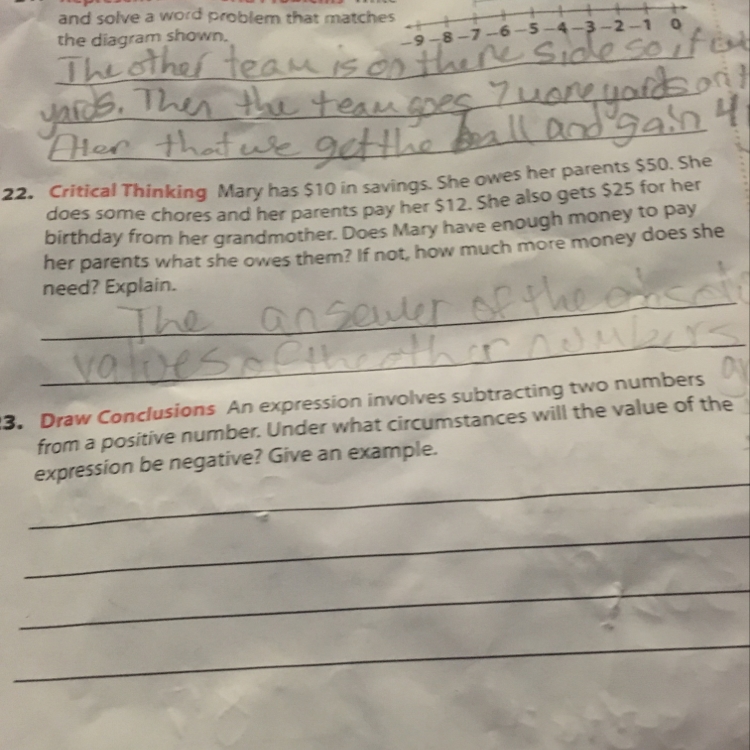 and solve a word problem that matches
the diagram shown.
-9 -8 -7 -6 -5 -4 -3 -2 -1 0
The other team is on there side so, if
yards. Then the team goes 7 more yards
After that we get the ball and gain 4
22. Critical Thinking Mary has $10 in savings. She owes her parents $50. She
does some chores and her parents pay her $12. She also gets $25 for her
birthday from her grandmother. Does Mary have enough money to pay
her parents what she owes them? If not, how much more money does she
need? Explain.
The ansewer of the
values of the other numbers
3. Draw Conclusions An expression involves subtracting two numbers
from a positive number. Under what circumstances will the value of the
expression be negative? Give an example.